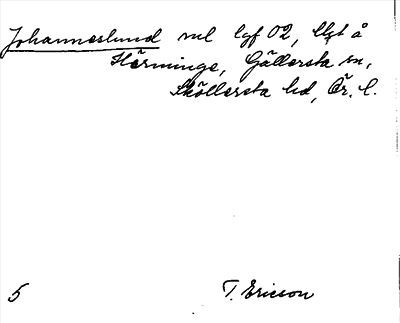 Johanneslund nul lgf 02, llgt å
Härminge, Gällersta sn,
Sköllersta hd, Ör. l.
5 T. Ericson